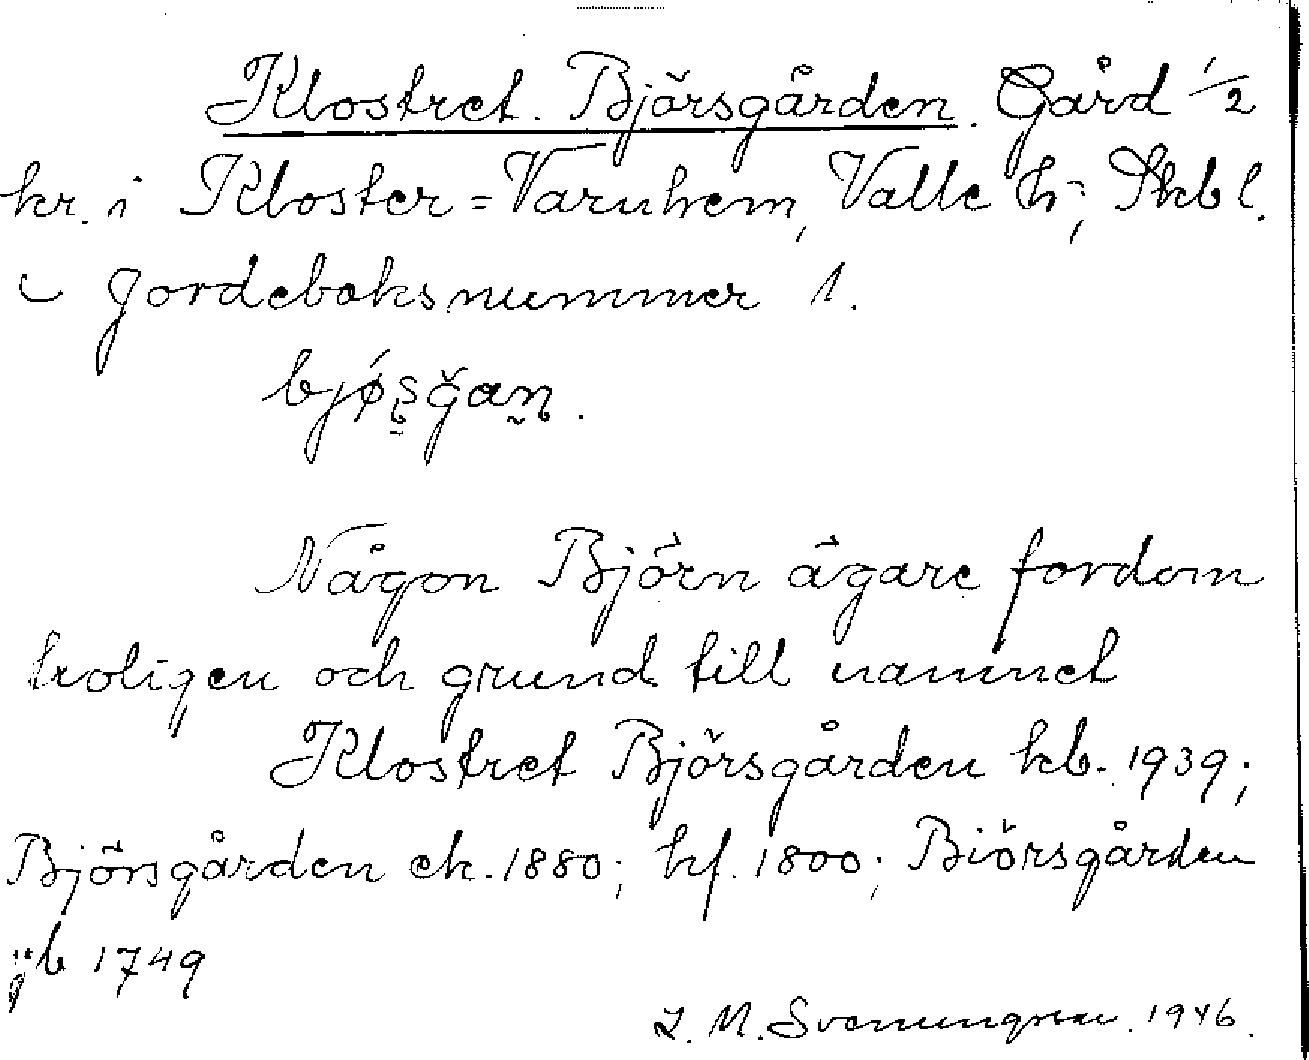 Klostret. Björsgården. Gård 1/2
kr. i Kloster=Varnhem, Valle h; Skbl.
Jordeboksnummer 1.
Någon Björn ägare fordom
troligen och grund till namnet
Klostret Björsgården kb. 1939;
Björsgården ek. 1880; kf. 1800; Biörsgården
jb 1749
1946.